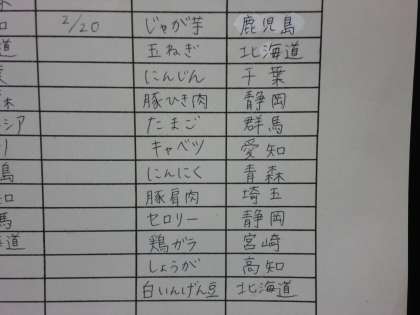 2/20 じゃが芋 鹿児島
道 五ねぎ 北海道
にんじん 千葉
豚ひき肉 静岡
シア たまご 群馬
キャベツ 愛知
島 にんにく 青森
豚肩肉 埼玉
馬 セロリー 静岡
道 鶏ガラ 宮崎
しょうが 高知
白いんげん豆 北海道